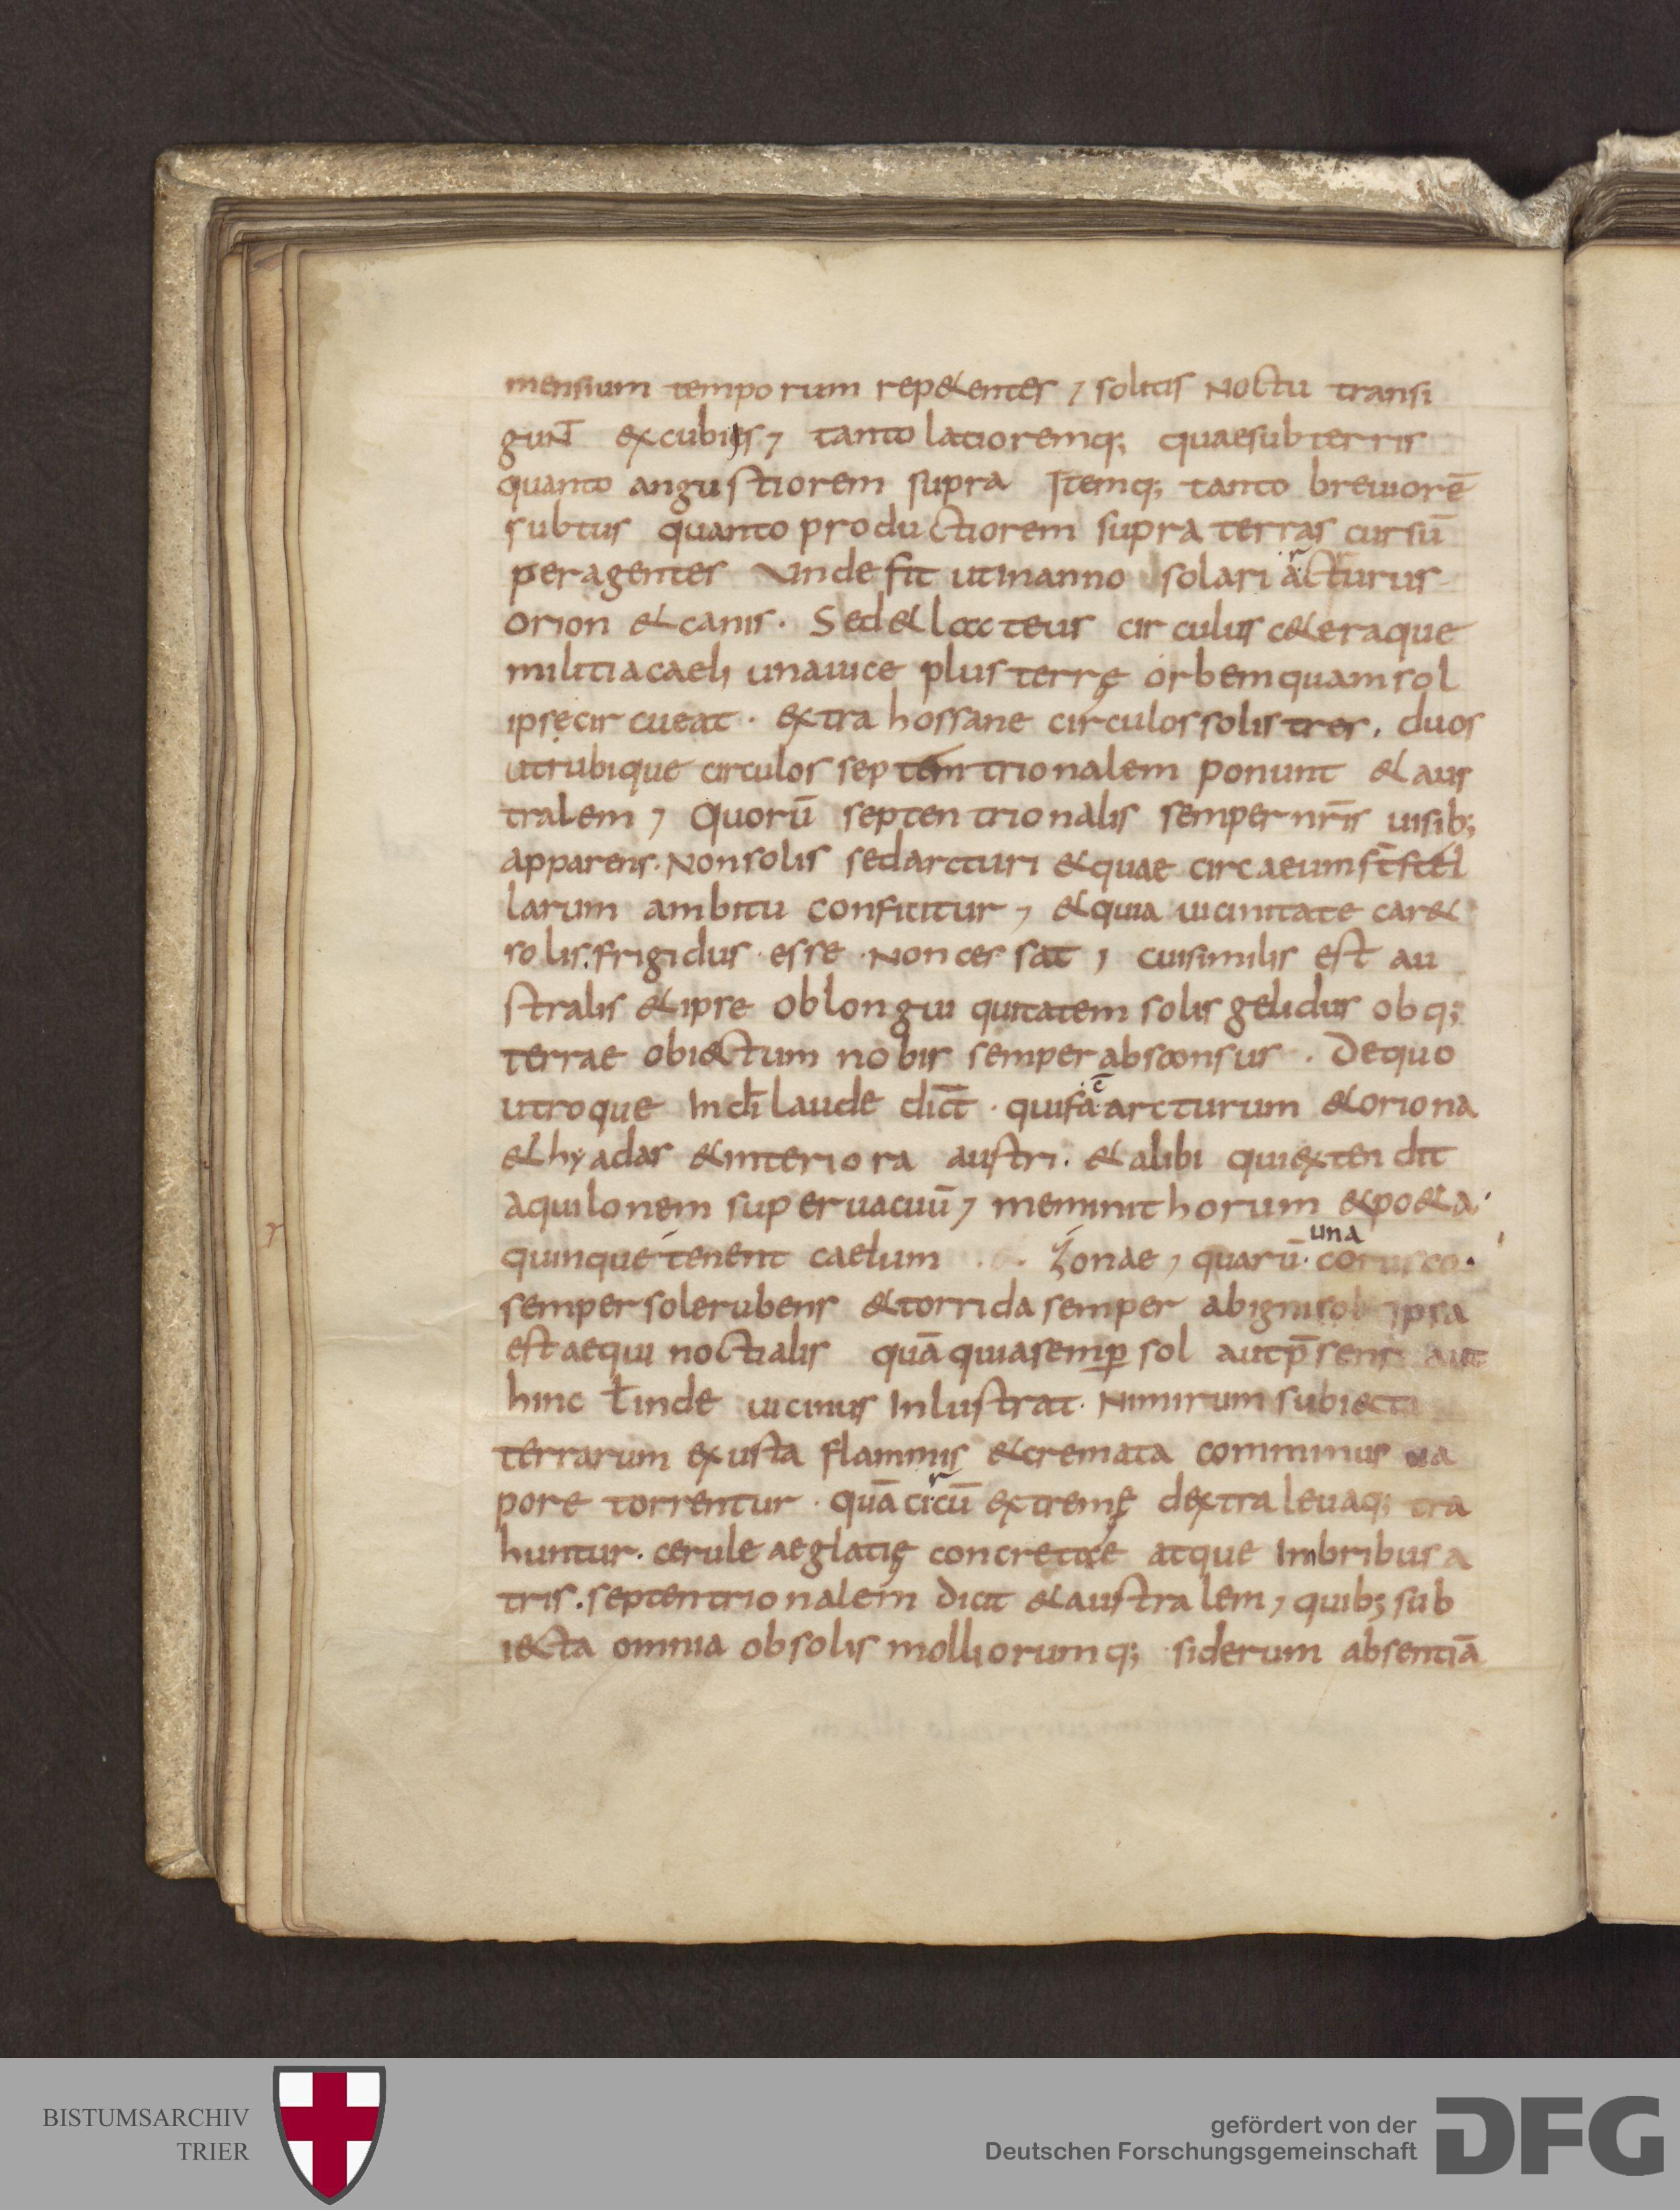 mensium temporum rep&enter ⁊ solitis Noctu transi
guNT excubiis ⁊ tanto latioremq; quaesubterris
quanto angustiorem supra Itemq; tanto breuiorē
subtus quanto productiorem supra terras cursū
peragenter Vnde fit utinanno solari arcturus
orion & canis. Sed&lacteus circulus c&eraque
militiacaeli unauice plus terrę orbemquamsol
ipsecircueat. extra hossane circulossolis tres, duos
utrubique circulos septemtrionalem ponunt & aus
tralem ⁊ Quorū septentrionalis semper nr̄is uisib;
apparens. Nonsolis sedarcturi &quae circaeum st̄ stel
larum ambitu conficitur ⁊ &quia uicinitate car&
solis. frigidus esse Non cessat ⁊ cuisimilis est au
stralis &ipse oblonguiquitatem solis gelidus obq;
terrae obiectum nobis semper absconsus. Dequo
utroque In dī laude dicit̄. quifac̄ arcturum &oriona
&hyadas &interiora austri. & alibi quiextendit
aquilonem super uacuū ⁊ meminit horum &po&a
quinque tenent caelum zonae, quarū una corusco.
sempersolerubens &torrida semper abigni ipsa
est aequinoctialis quā quiasemp̄ sol autp̄sens aut
hinc ł inde uicinus Inlustrat. Nimirum subiecta
terrarum exusta flammis &cremata comminus ua
pore torrentur. quā circū extremę dextra leuaq; tra
huntur. cerule aeglatię concretae atque Imbribus a
tris. septentrionalem Dicit &australem, quib; sub
iecta omnia obsolis molliorumq; siderum absentiā
BISTUMSARCHIV
TRIER
gefördert von der
Deutschen Forschungsgemeinschaft
DFG